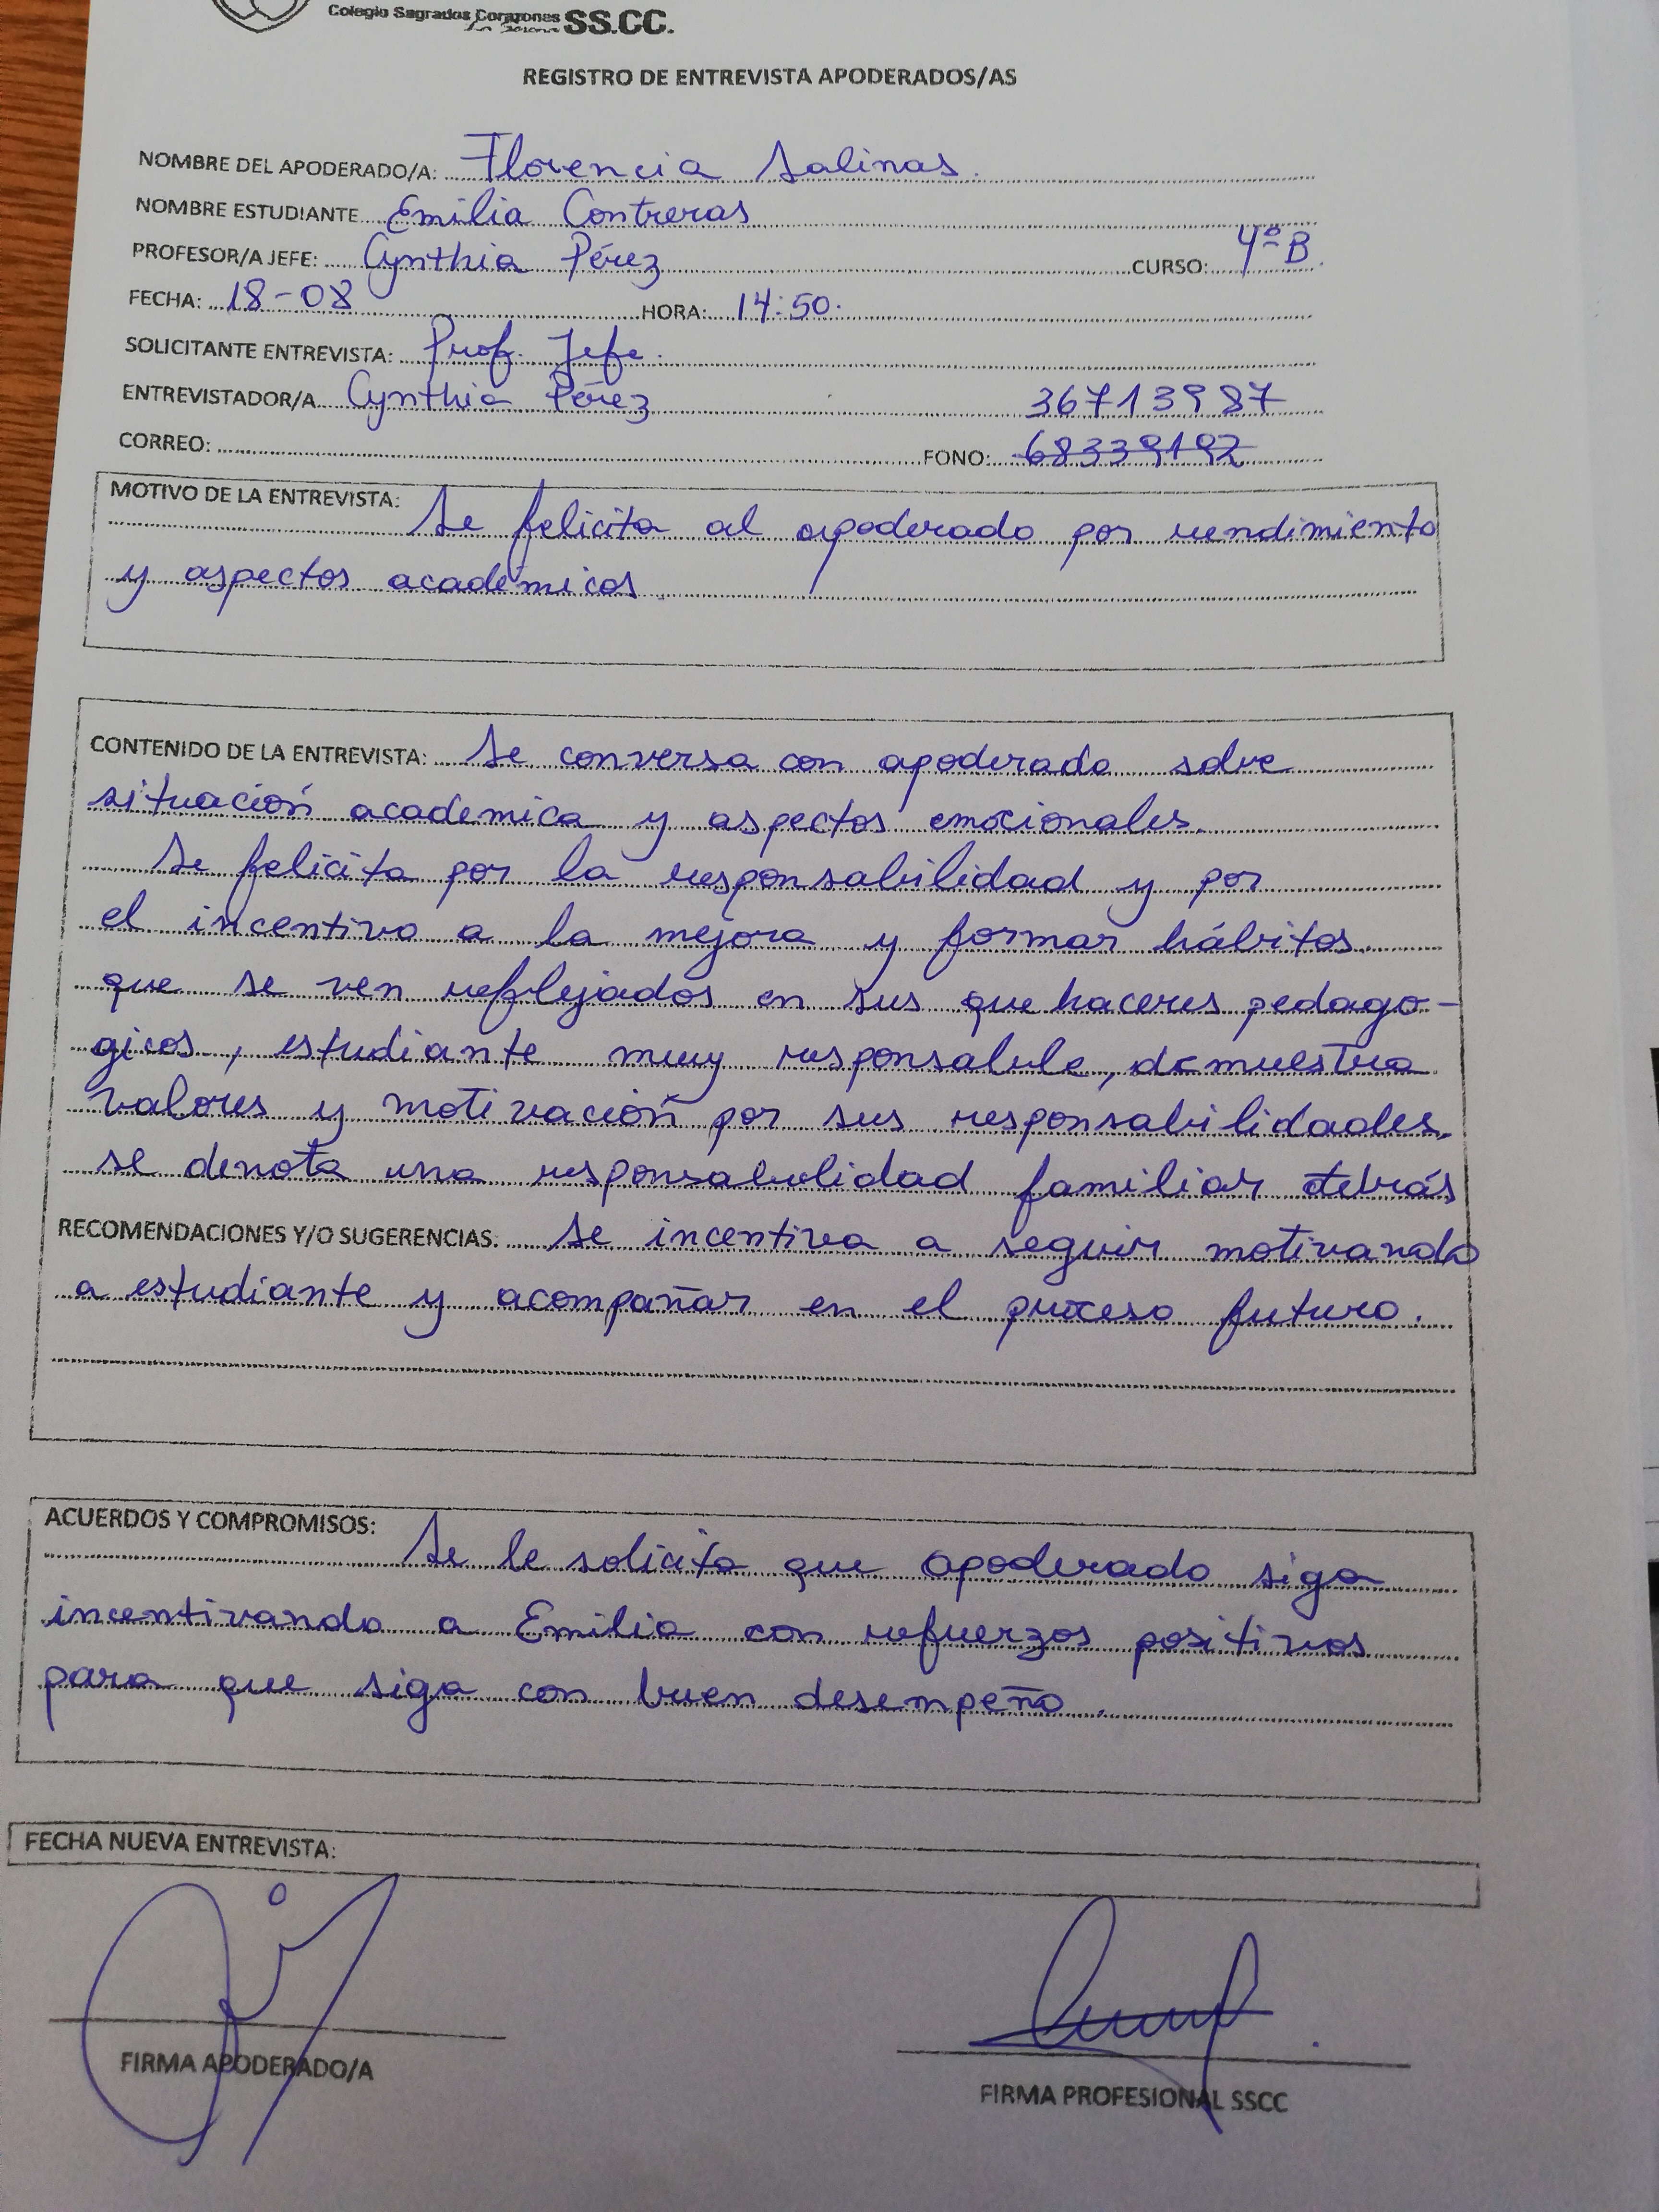 Colegio Sagrados Corazones SS.CC.
REGISTRO DE ENTREVISTA APODERADOS/AS
NOMBRE DEL APODERADO/A: Florencia Salinas.
NOMBRE ESTUDIANTE Emilia Contreras
PROFESOR/A JEFE: Cynthia Pérez CURSO: 4º B
FECHA: 18-08 HORA: 14:50.
SOLICITANTE ENTREVISTA: Prof. Jefe.
ENTREVISTADOR/A Cynthia Pérez 36713987
CORREO: FONO: 68339192
MOTIVO DE LA ENTREVISTA: Se felicita al apoderado por rendimiento
y aspectos académicos.
CONTENIDO DE LA ENTREVISTA: Se conversa con apoderado sobre
situación academica y aspectos emocionales.
Se felicita por la responsabilidad y por
el incentivo a la mejora y formar hábitos
que se ven reflejados en sus que haceres pedago-
gicos, estudiante muy responsable, demuestra
valores y motivación por sus responsabilidades,
se denota una responsabilidad familiar detrás
RECOMENDACIONES Y/O SUGERENCIAS: Se incentiva a seguir motivando
a estudiante y acompañar en el proceso futuro.
ACUERDOS Y COMPROMISOS:
Se le solicita que apoderado siga
incentivando a Emilia con refuerzos positivos
para que siga con buen desempeño.
FECHA NUEVA ENTREVISTA:
FIRMA APODERADO/A
FIRMA PROFESIONAL SSCC